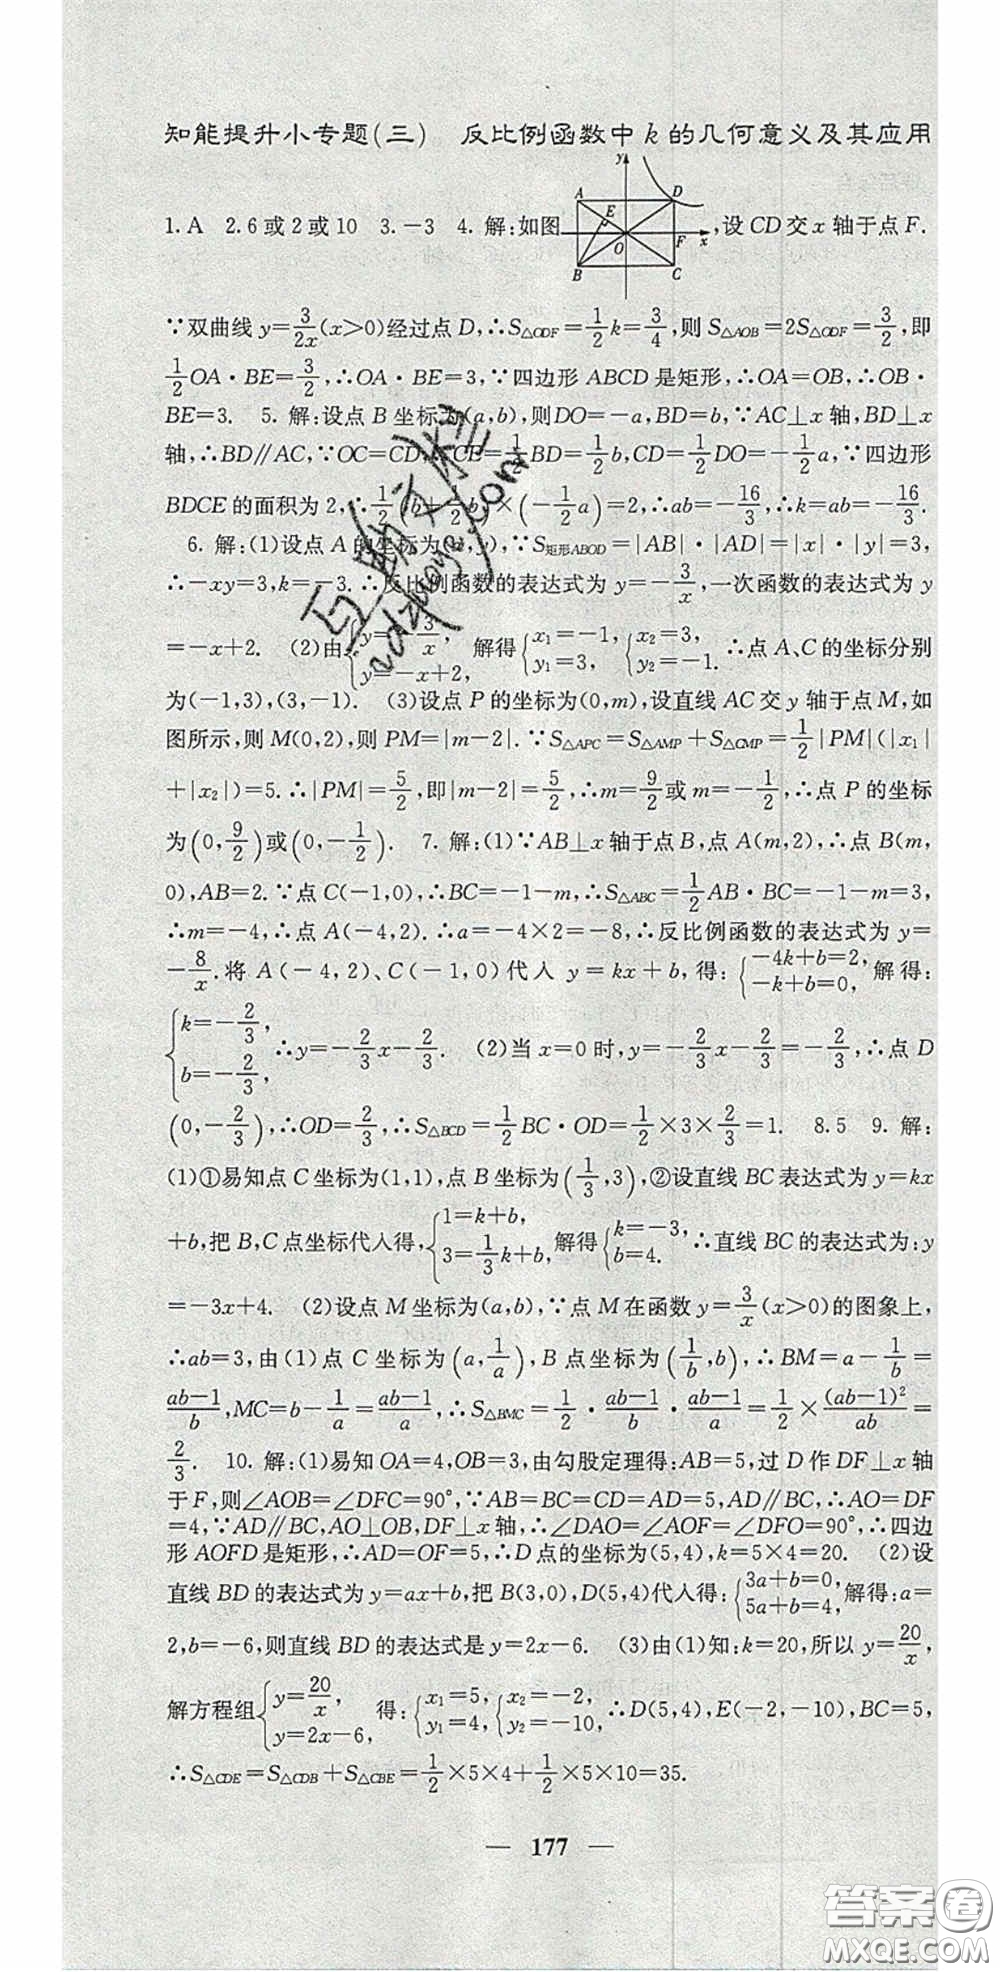 知能提升小专题(三) 反比例函数中k的几何意义及其应用
1.A 2.6或2或10 3.-3 4.解:如图 ,设CD交x轴于点F.
y
A D
E
F
O x
B C
∵双曲线y=3/(2x)(x>0)经过点D,∴S△ODF=1/2k=3/4,则S△AOB=2S△ODF=3/2,即
1/2OA·BE=3/2,∴OA·BE=3,∵四边形ABCD是矩形,∴OA=OB,∴OB·
BE=3. 5.解:设点B坐标为(a,b),则DO=-a,BD=b,∵AC⊥x轴,BD⊥x
轴,∴BD∥AC,∵OC=CD,∴CE=1/2BD=1/2b,CD=1/2DO=-1/2a,∵四边形
BDCE的面积为2,∴1/2(b+1/2b)×(-1/2a)=2,∴ab=-16/3,∴k=ab=-16/3.
6.解:(1)设点A的坐标为(x,y),∵S矩形ABOD=|AB|·|AD|=|x|·|y|=3,
∴-xy=3,k=-3.∴反比例函数的表达式为y=-3/x,一次函数的表达式为y
=-x+2. (2)由{y=-3/x, y=-x+2, 解得{x₁=-1, y₁=3, {x₂=3, y₂=-1. ∴点A、C的坐标分别
为(-1,3),(3,-1). (3)设点P的坐标为(0,m),设直线AC交y轴于点M,如
图所示,则M(0,2),则PM=|m-2|.∵S△APC=S△AMP+S△CMP=1/2|PM|(|x₁|
+|x₂|)=5.∴|PM|=5/2,即|m-2|=5/2,∴m=9/2或m=-1/2,∴点P的坐标
为(0,9/2)或(0,-1/2). 7.解:(1)∵AB⊥x轴于点B,点A(m,2),∴点B(m,
0),AB=2.∵点C(-1,0),∴BC=-1-m,∴S△ABC=1/2AB·BC=-1-m=3,
∴m=-4,∴点A(-4,2).∴a=-4×2=-8,∴反比例函数的表达式为y=
-8/x.将A(-4,2)、C(-1,0)代入y=kx+b,得:{-4k+b=2, -k+b=0, 解得:
{k=-2/3, b=-2/3, ∴y=-2/3x-2/3. (2)当x=0时,y=-2/3x-2/3=-2/3,∴点D
(0,-2/3),∴OD=2/3,∴S△BCD=1/2BC·OD=1/2×3×2/3=1. 8.5 9.解:
(1)①易知点C坐标为(1,1),点B坐标为(1/3,3),②设直线BC表达式为y=kx
+b,把B,C点坐标代入得,{1=k+b, 3=1/3k+b, 解得{k=-3, b=4. ∴直线BC的表达式为:y
=-3x+4. (2)设点M坐标为(a,b),∵点M在函数y=3/x(x>0)的图象上,
∴ab=3,由(1)点C坐标为(a,1/a),B点坐标为(1/b,b),∴BM=a-1/b=
(ab-1)/b,MC=b-1/a=(ab-1)/a,∴S△BMC=1/2·(ab-1)/b·(ab-1)/a=1/2×(ab-1)²/ab=
2/3. 10.解:(1)易知OA=4,OB=3,由勾股定理得:AB=5,过D作DF⊥x轴
于F,则∠AOB=∠DFC=90°,∵AB=BC=CD=AD=5,AD∥BC,∴AO=DF
=4,∵AD∥BC,AO⊥OB,DF⊥x轴,∴∠DAO=∠AOF=∠DFO=90°,∴四边
形AOFD是矩形,∴AD=OF=5,∴D点的坐标为(5,4),k=5×4=20. (2)设
直线BD的表达式为y=ax+b,把B(3,0),D(5,4)代入得:{3a+b=0, 5a+b=4, 解得:a=
2,b=-6,则直线BD的表达式是y=2x-6. (3)由(1)知:k=20,所以y=20/x,
解方程组{y=20/x, y=2x-6, 得:{x₁=5, y₁=4, {x₂=-2, y₂=-10, ∴D(5,4),E(-2,-10),BC=5,
∴S△CDE=S△CDB+S△CBE=1/2×5×4+1/2×5×10=35.
— 177 —
答案圈
MXQE.COM